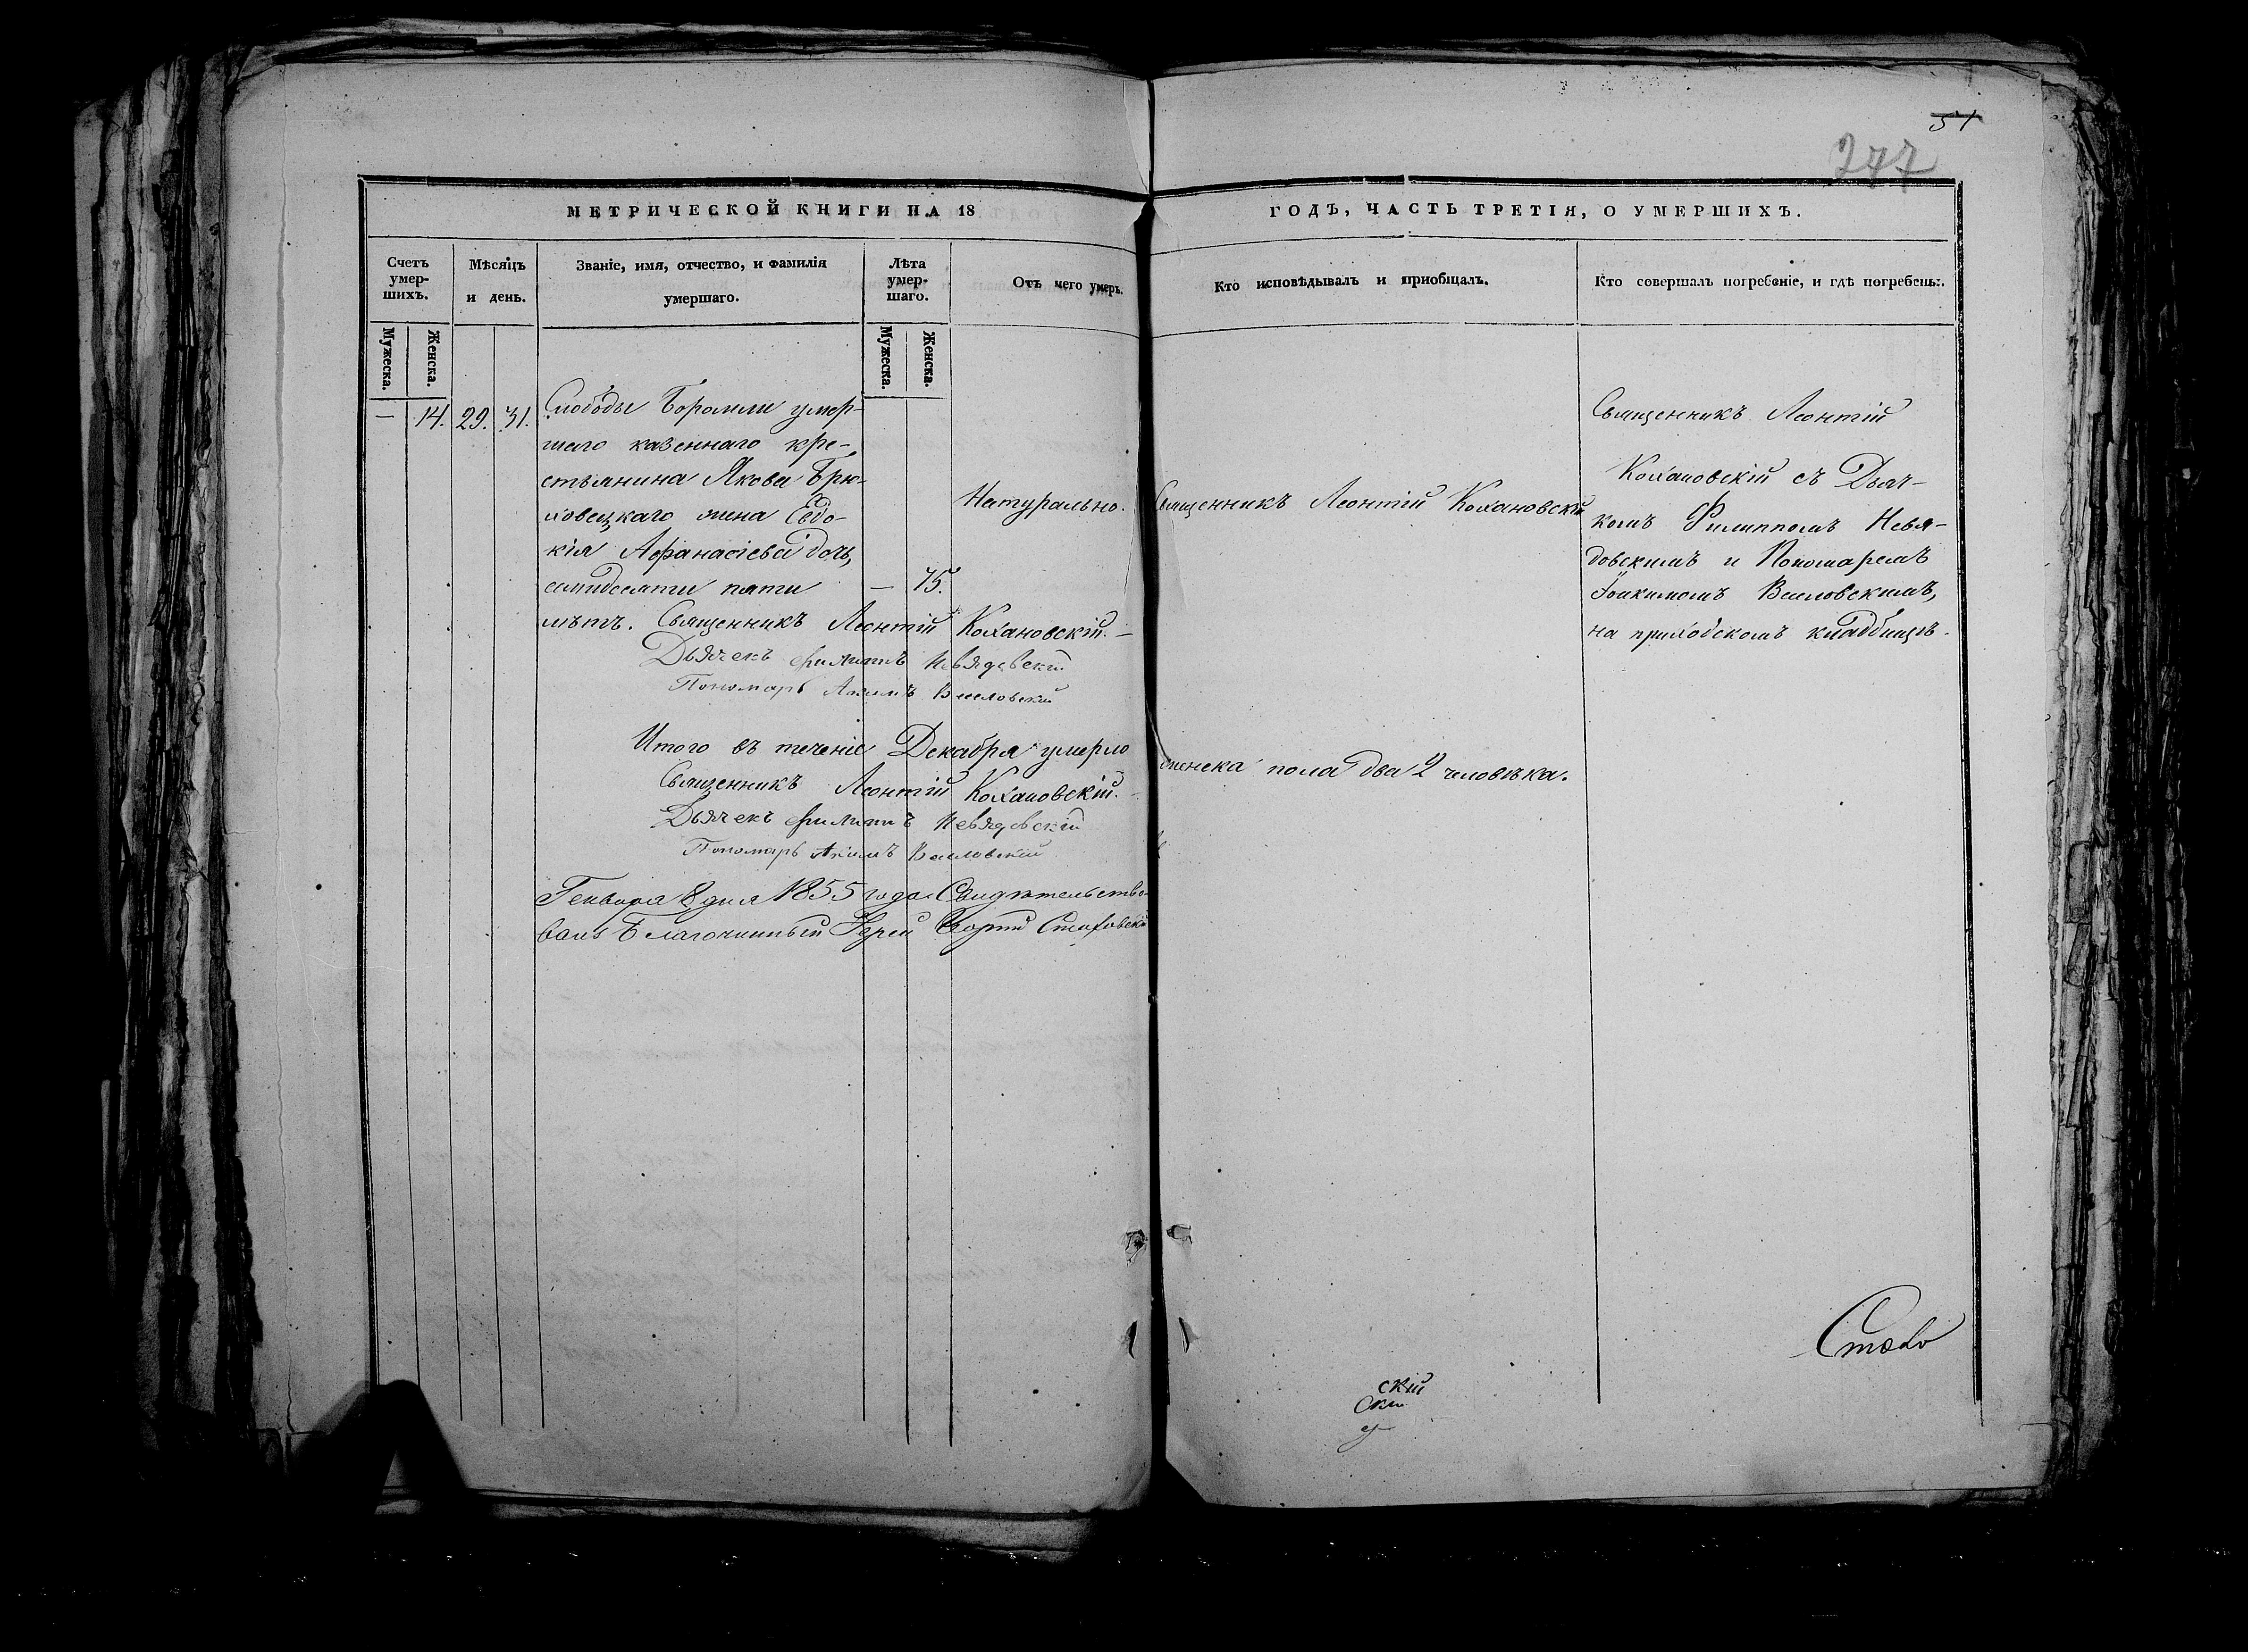 51
277
МЕТРИЧЕСКОЙ КНИГИ НА 18
ГОДЪ, ЧАСТЬ ТРЕТІЯ, О УМЕРШИХЪ.
Счетъ умер-шихъ.
Мужеска.
Женска.
Мѣсяцъ и день.
Званіе, имя, отчество, и фамилія умершаго.
Лѣта умер-шаго.
Мужеска.
Женска.
Отъ чего умеръ.
Кто исповѣдывалъ и пріобщалъ.
Кто совершалъ погребеніе, и гдѣ погребены.
— 14. 29. 31.
Слободы Боромли умер-
шаго казеннаго кре-
стьянина Якова Брю-
ховецкаго жена Евдо-
кія Афанасіева дочь,
семидесяти пяти — 75.
лѣтъ.
Натурально.
Священникъ Леонтій Кохановскій
Священникъ Леонтій
Кохановскій съ Дьяч-
комъ Филиппомъ Невя-
довскимъ и Пономаремъ
Іоакимомъ Веселовскимъ,
на приходскомъ кладбищѣ.
Священникъ Леонтій Кохановскій. —
Дьячекъ Филиппъ Невядовскій
Пономарь Акимъ Веселовскій
Итого въ теченіе Декабря умерло женска пола два 2 человѣка.
Священникъ Леонтій Кохановскій. —
Дьячекъ Филиппъ Невядовскій
Пономарь Акимъ Веселовскій
Генваря 8 дня 1855 года Свидѣтельство-
валъ Благочинный Іерей
скій
скій